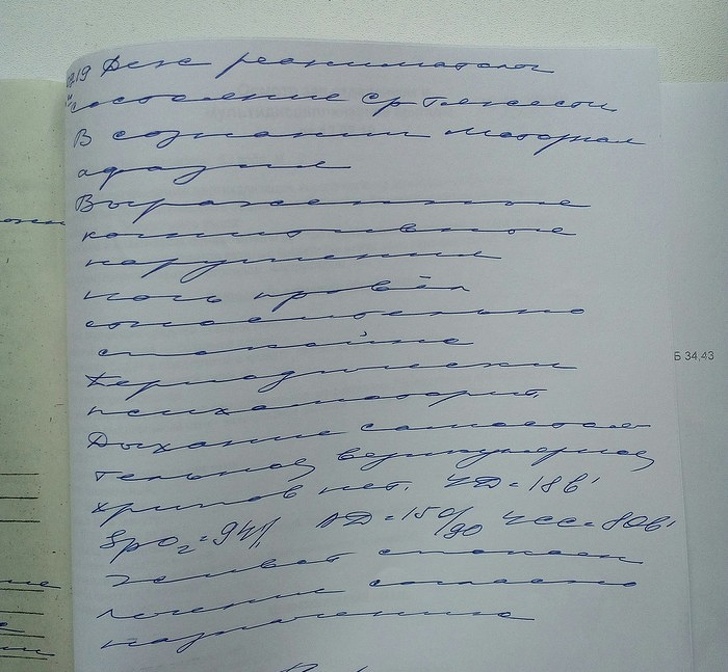 19 Деж реаниматолог
состояние ср тяжести
В сознании моторная
афазия
Выраженные
когнитивные
нарушения
ночь провёл
относительно
спокойно
Периодически
психомотор.
Дыхание самостоя
тельное, везикулярное,
хрипов нет. ЧД=18 в'
SpO2=94% АД=150/90 ЧСС=80 в'
Живот спокоен
лечение согласно
назначению
Б 34,43